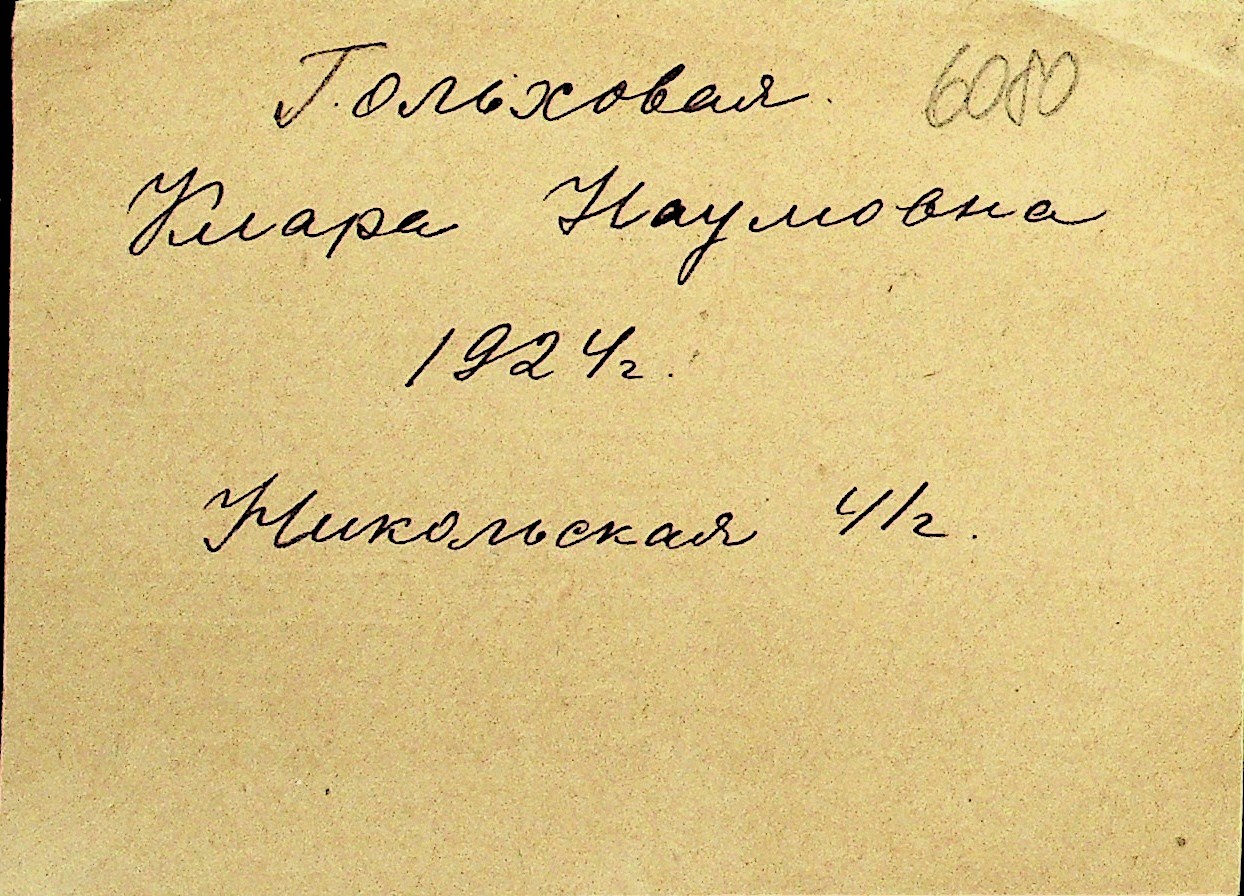 Гольховая. 6080
Клара Наумовна
1924г.
Никольская 4/2.